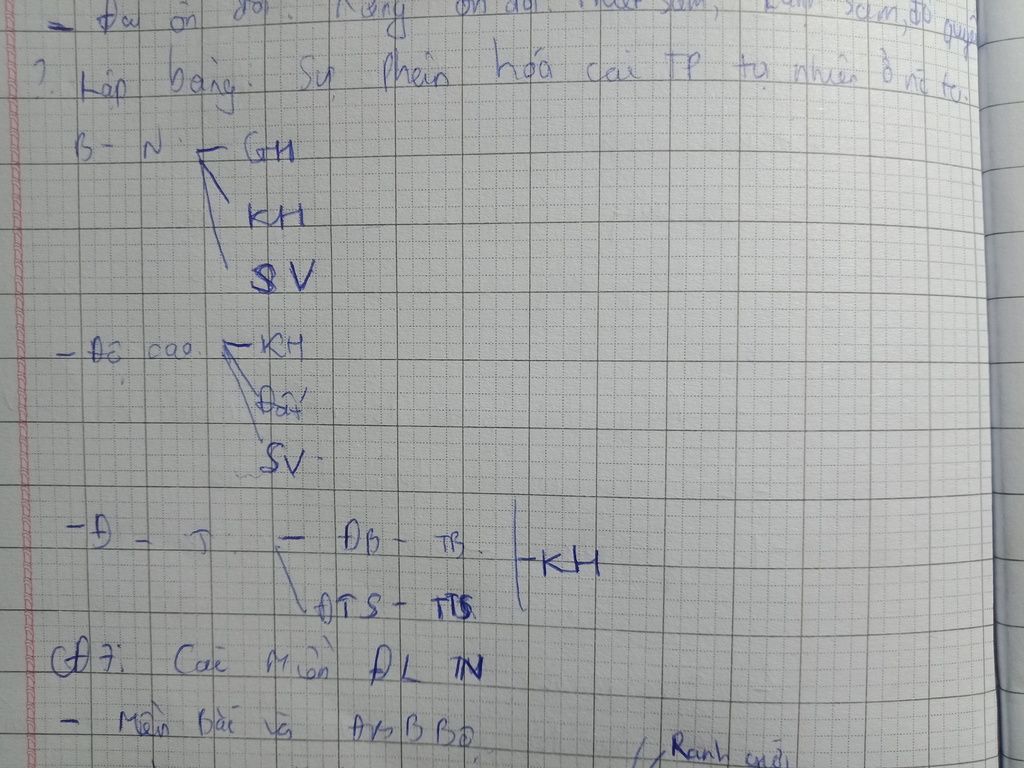 - Đai ôn đới.
? Lập bảng. Sự phân hóa các TP tự nhiên ở nc ta.
B - N - GH
KH
SV
- Độ cao - KH
Đất
SV
- Đ - T - ĐB - TB - KH
ĐTS - TTS
CĐ7: Các Miền ĐL TN
- Miền Bắc và ĐBBBộ
Ranh giới